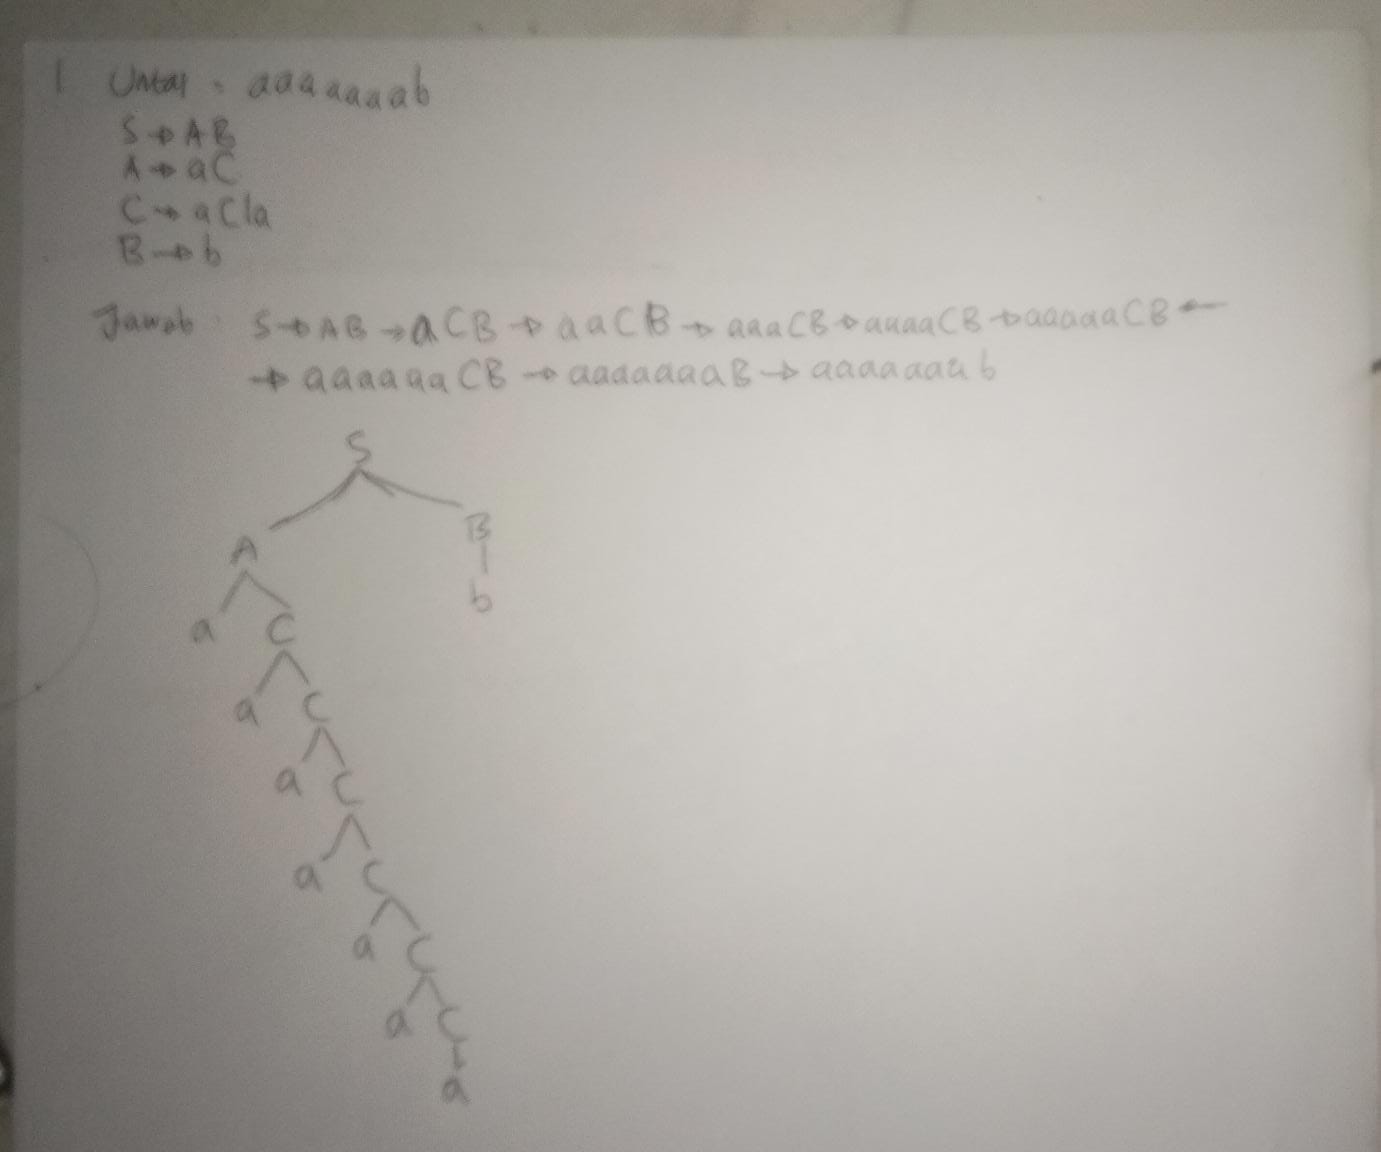 1 Untai = aaaaaaab
S → AB
A → aC
C → aC|a
B → b
Jawab : S → AB → aCB → aaCB → aaaCB → aaaaCB → aaaaaCB ←
→ aaaaaaCB → aaaaaaaB → aaaaaaab
S
A B
b
a C
a C
a C
a C
a C
a C
a